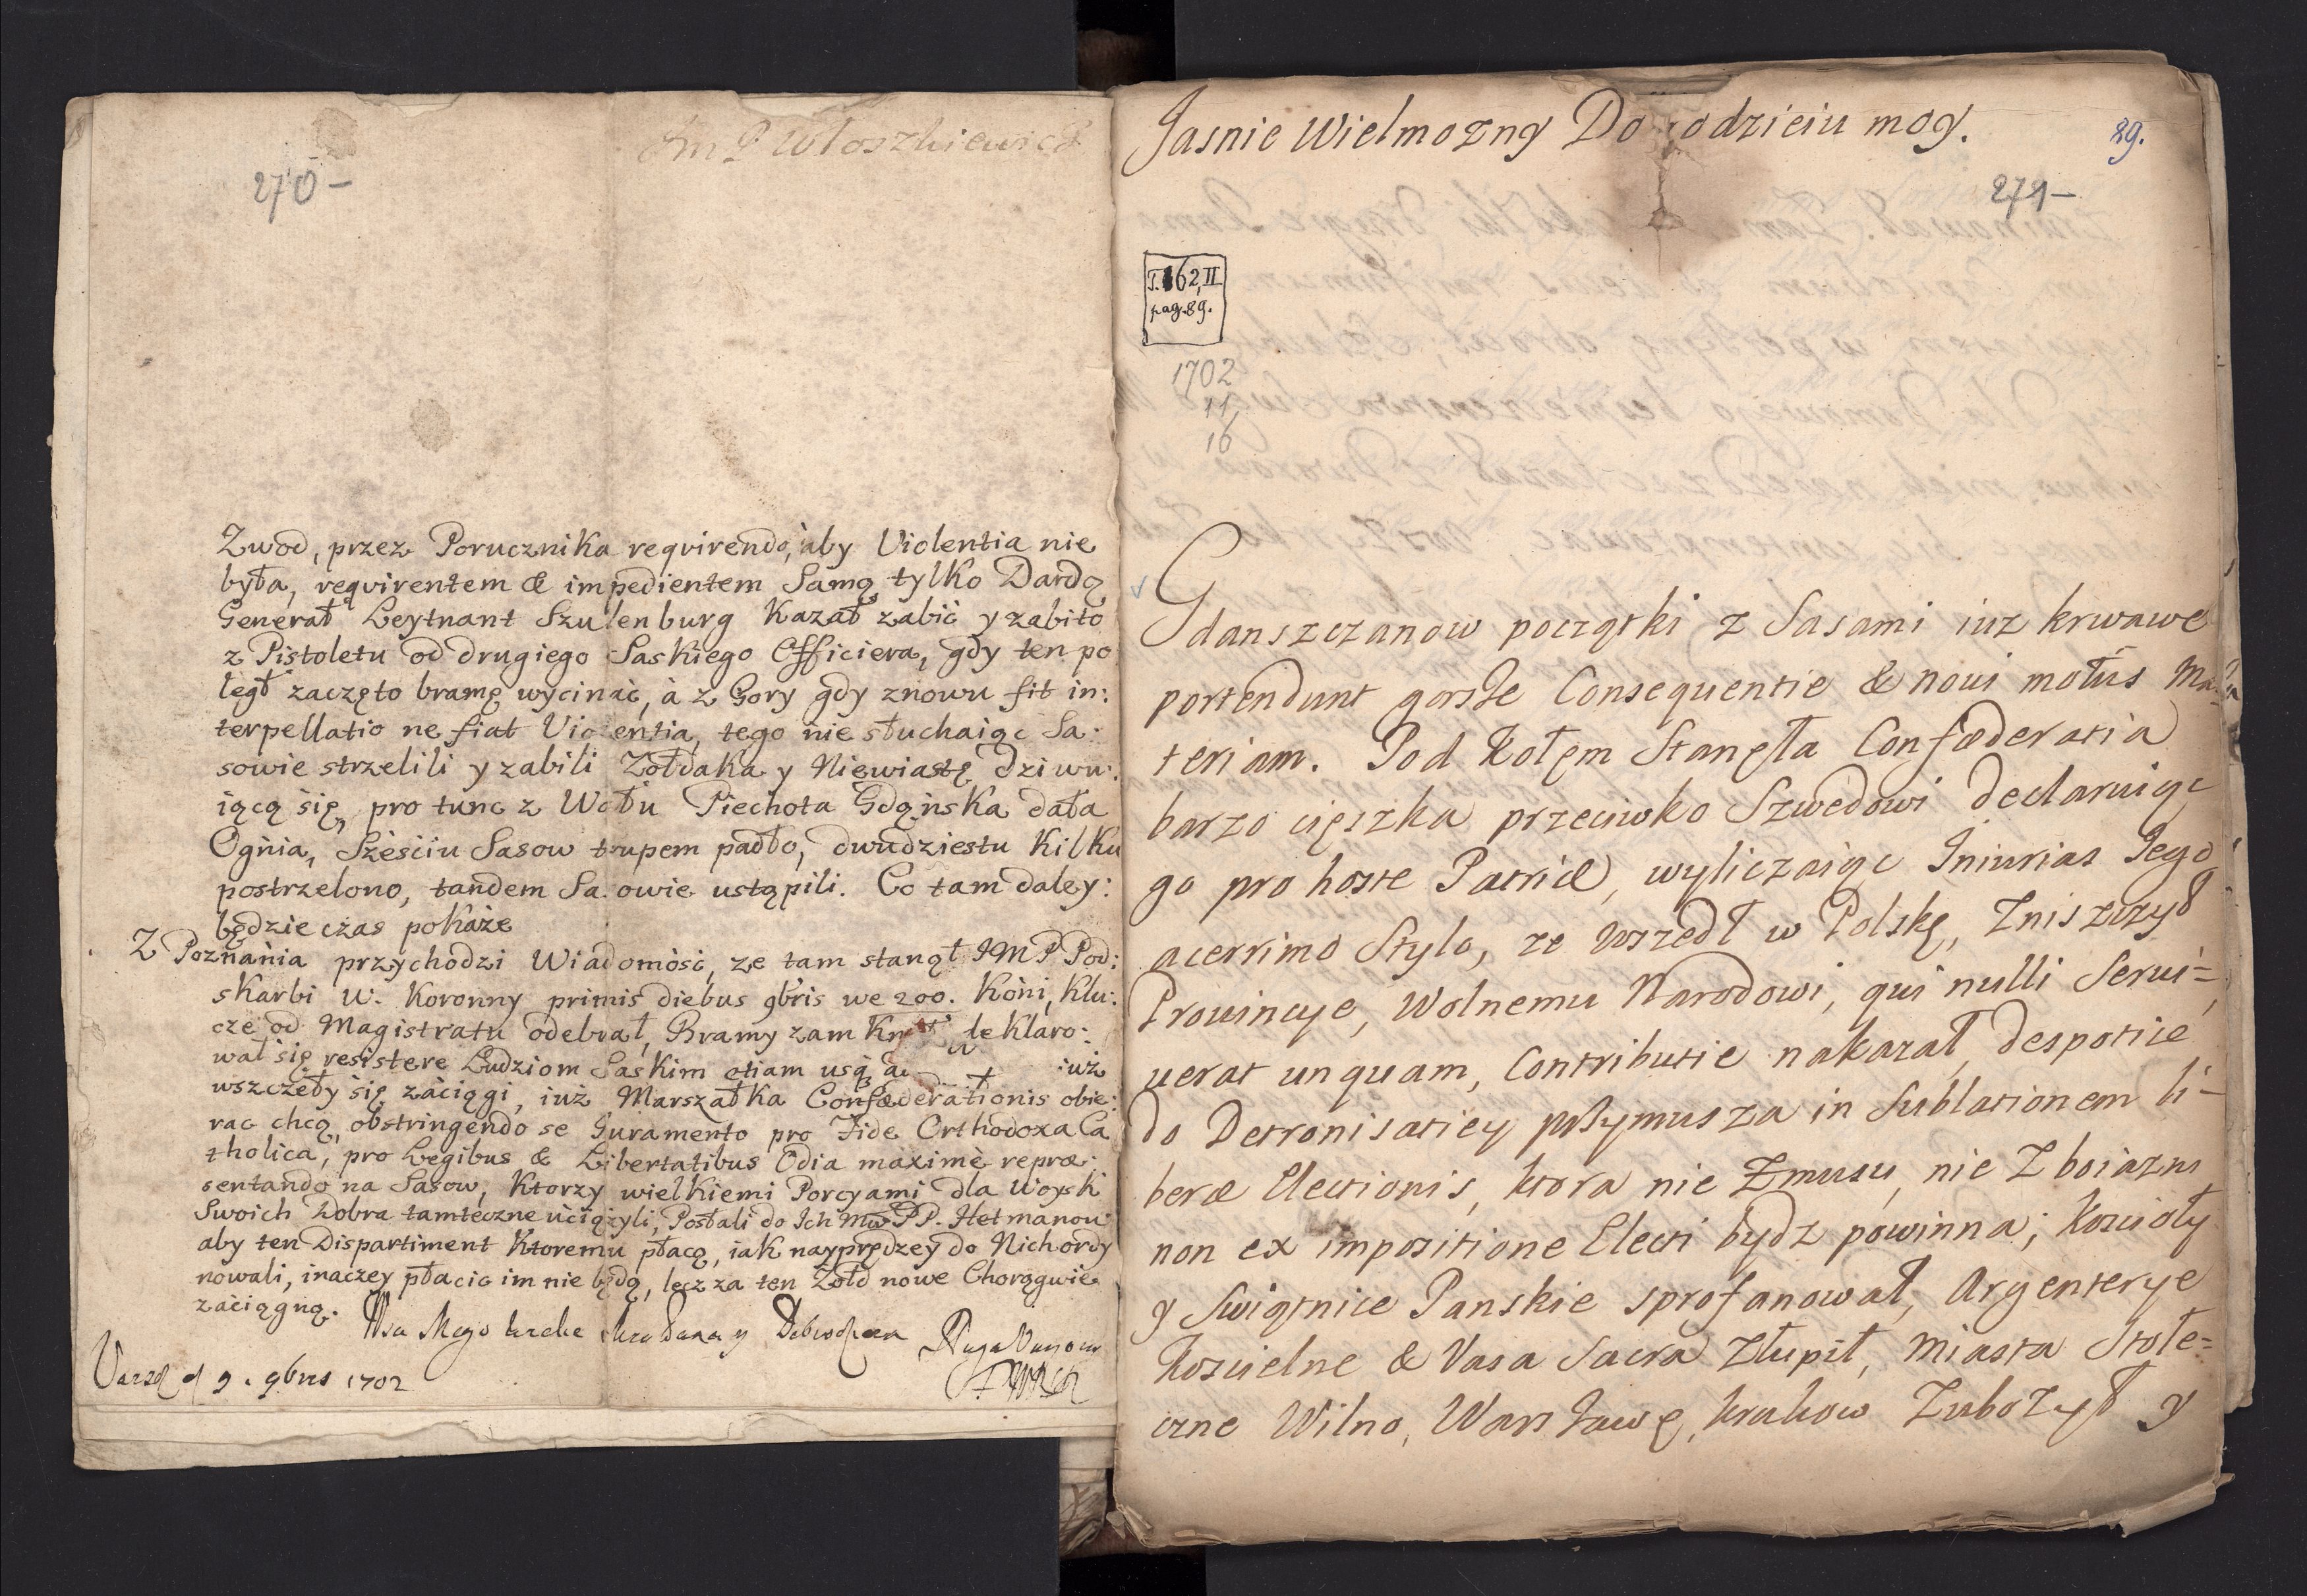 Im P Włoszkiewicz
270 –
Zwod, przez Porucznika reqvirendo, aby Violentia nie
była, reqvirentem & impedientem Samą tylko Dardą
Generał Leytnant Szulenburg Kazał zabić y zabito
z Pistoletu od drugiego Saskiego Officiera, gdy ten po
legł zaczęto bramę wycinać, à z Gory gdy znowu fit in:
terpellatio ne fiat Violentia, tego nie słuchaiąc Sa:
sowie strzelili y zabili Zołdaka y Niewiastę dziwu:
iącą się, pro tunc z Wału Piechota Gdąńska dała
Ognia, Sześciu Sasow trupem padło, dwudziestu Kilku
postrzelono, tandem Sa owie ustąpili. Co tam daley:
będzie czas pokaże
Z Poznania przychodzi Wiadomość, ze tam stanął JMP Pod:
skarbi W. Koronny primis diebus 9bris we 200. Koni, Klu:
cze od Magistratu odebrał, Bramy zam deklaro:
wał się resistere Ludziom Saskim etiam usq, iuż
wszczeły się záciągi, iuż Marszałka Confœderationis obie:
rac chcą, obstringendo se Juramento pro Fide Orthodoxa Ca
tholica, pro Legibus & Libertatibus Odia maximè repræ:
sentando na Sasow, Ktorzy wielkiemi Porcyami dla Woysk
Swoich Dobra tamteczne uciążyli, Posłali do Ich Mw PP. Hetmanow
aby ten Dispartiment Ktoremu płacą, iak nayprędzey do Nich ordy
nowali, inaczey płacic im nie będą, lecz za ten Zołd nowe Chorągwie
záciągną.
Varsz d 9. 9bris 1702
Jasnie Wielmozny Do odzieiu moy.
89.
271 –
T. 162, II
pag. 89.
1702
11
16
Gdanszczanow początki z Sasami iuz krwawe
portendunt gorsze Consequentie & noui motus Ma-
teriam. Pod Kołem Stanęła Confœderatia
barzo cięszka przeciwko Szwedowi declaruiąc
go pro hoste Patriæ, wyliczaiąc Iniurias Jego
acerrimo Stylo, ze wszedł w Polskę, Zniszczył
Prouincye, Wolnemu Narodowi, qui nulli Serui=
uerat unquam, Contributie nakazał, despotice
do Detronisatiey przymusza in Sublationem li-
beræ Electionis, ktora nie Zmusu, nie Z boiazni
non ex impositione Electi bydz powinna; Koscioły
y Swiątnice Panskie sprofanował, Argenterye
Koscielne & Vasa Sacra Złupił, Miasta Stołe=
czne Wilno, Warszawę, Krakow Zubozył y